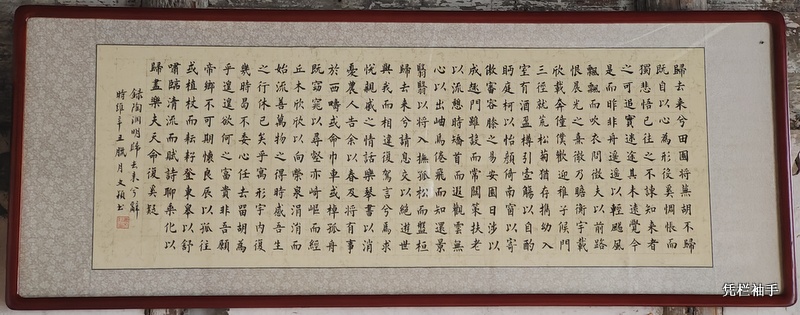 歸去来兮田園將蕪胡不歸
既自以心為形役奚惆悵而
獨悲悟已往之不諫知来者
之可追實迷途其未遠覺今
是而昨非舟遥遥以輕颺風
飄飄而吹衣問征夫以前路
恨晨光之熹微乃瞻衡宇載
欣載奔僮僕歡迎稚子候門
三徑就荒松菊猶存携幼入
室有酒盈樽引壺觴以自酌
眄庭柯以怡顔倚南窗以寄
傲審容膝之易安園日涉以
成趣門雖設而常關策扶老
以流憩時矯首而遐觀雲無
心以出岫鳥倦飛而知還景
翳翳以將入撫孤松而盤桓
歸去来兮請息交以絶遊世
與我而相違復駕言兮焉求
悦親戚之情話樂琴書以消
憂農人告余以春及將有事
於西疇或命巾車或棹孤舟
既窈窕以尋壑亦崎嶇而經
丘木欣欣以向榮泉涓涓而
始流善萬物之得時感吾生
之行休已矣乎寓形宇内復
幾時曷不委心任去留胡為
乎遑遑欲何之富貴非吾願
帝鄉不可期懷良辰以孤往
或植杖而耘耔登東皋以舒
嘯臨清流而賦詩聊乘化以
歸盡樂夫天命復奚疑
錄陶淵明歸去来兮辭
時維辛丑臘月文穎書
凭栏袖手